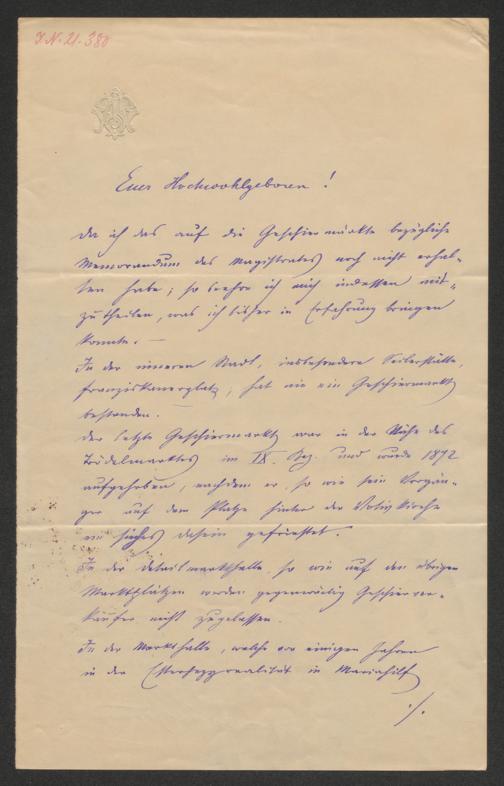 I.N. 21.380
Euer Hochwohlgeboren!
Da ich das auf die Geschirrmärkte bezügliche
Memorandum des Magistrates noch nicht erhal-
ten habe; so beehre ich mich indessen mit-
zutheilen, was ich bisher in Erfahrung bringen
konnte. —
In der inneren Stadt, insbesondere Seilerstätte,
Franziskanerplatz, hat nie ein Geschiermarkt
bestanden. —
Der letzte Geschiermarkt war in der Nähe des
Trödelmarktes im IX. Bez. und wurde 1872
aufgehoben, nachdem er, so wie sein Vorgän-
ger auf dem Platze hinter der Votivkirche
ein Dasein gefristet.
In der Detailmarkthalle, so wie auf den übrigen
Marktplätzen werden gegenwärtig Geschierver-
käufer nicht zugelassen.
In der Markthalle, welche vor einigen Jahren
in der Esterhazyrealität in Mariahilf
./.